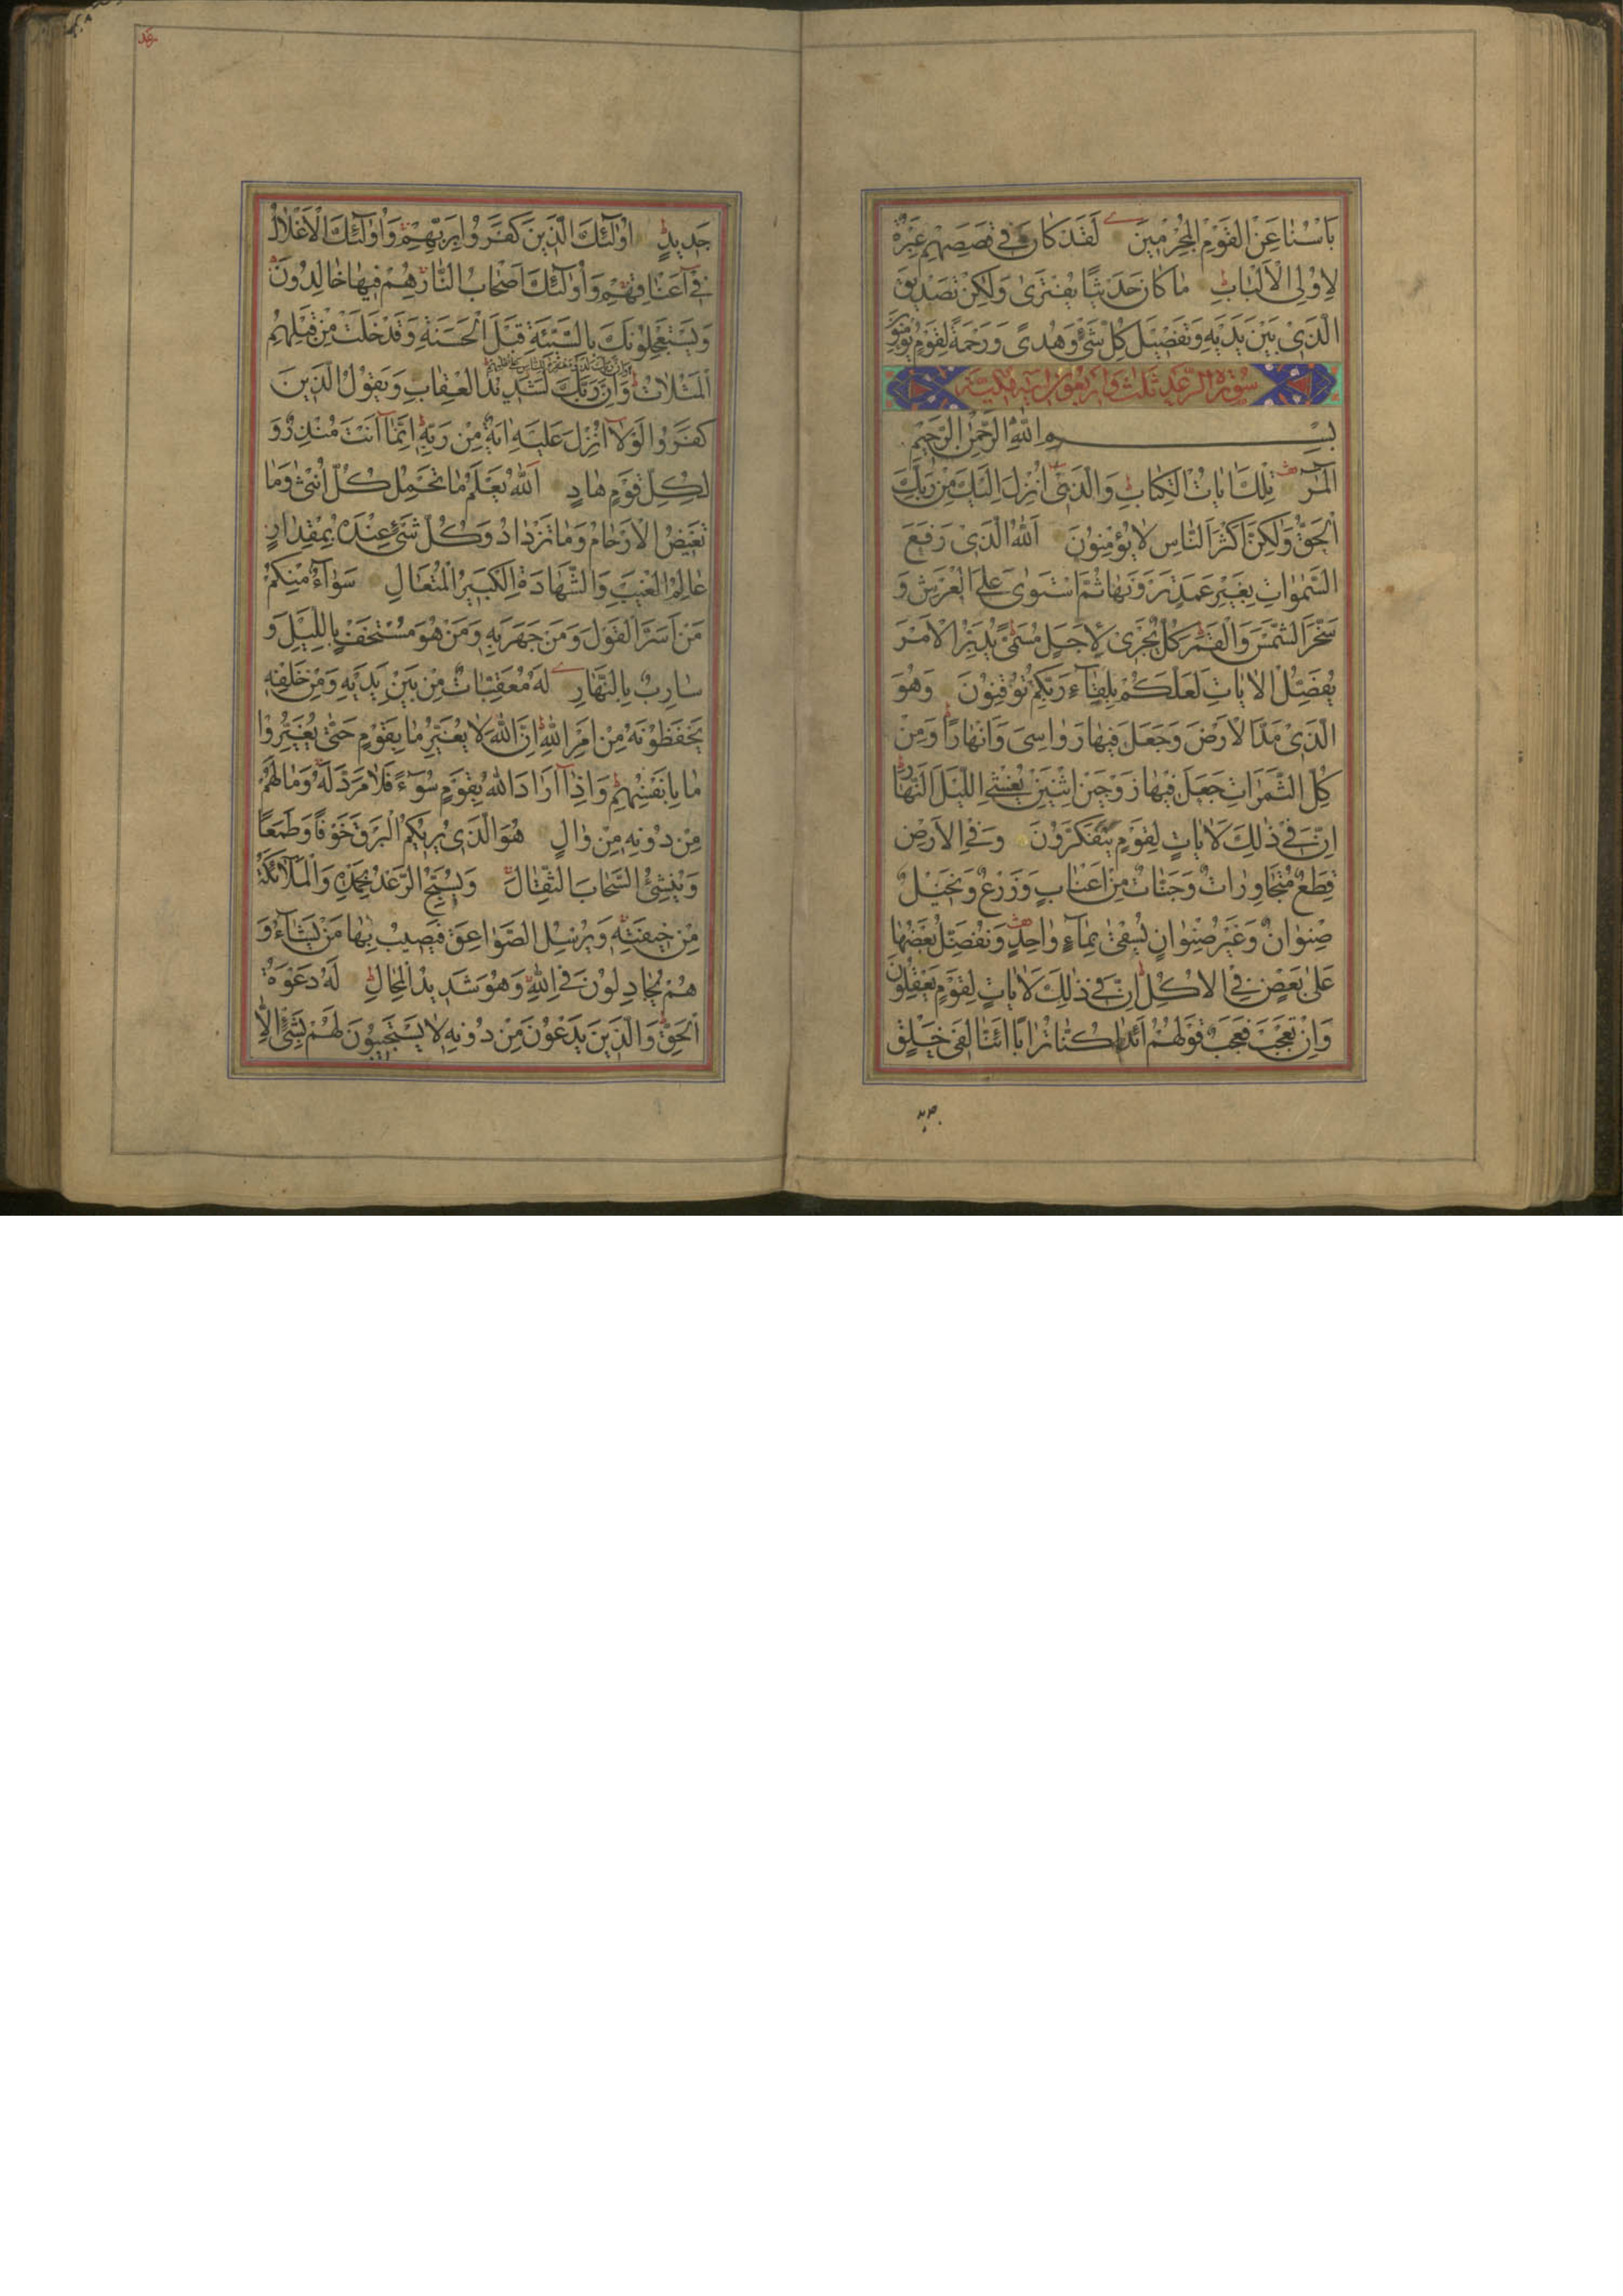 بَاْسُنَا عَنِ الْقَوْمِ الْمُجْرِمِينَ لَقَدْ كَانَ فِي قَصَصِهِمْ عِبْرَةٌ
لِاُولِي الْاَلْبَابِ ط مَا كَانَ حَدِيثًا يُفْتَرٰى وَلٰكِنْ تَصْدِيقَ
الَّذِي بَيْنَ يَدَيْهِ وَتَفْصِيلَ كُلِّ شَيْءٍ وَهُدًى وَرَحْمَةً لِقَوْمٍ يُؤْمِنُونَ
سُورَةُ الرَّعْدِ ثلث واربعون اية مكية
بِسْمِ اللّٰهِ الرَّحْمٰنِ الرَّحِيمِ
الٓمٓرٰ تِلْكَ اٰيَاتُ الْكِتَابِ وَالَّذِي اُنْزِلَ اِلَيْكَ مِنْ رَبِّكَ
الْحَقُّ وَلٰكِنَّ اَكْثَرَ النَّاسِ لَا يُؤْمِنُونَ اَللّٰهُ الَّذِي رَفَعَ
السَّمٰوَاتِ بِغَيْرِ عَمَدٍ تَرَوْنَهَا ثُمَّ اسْتَوٰى عَلَى الْعَرْشِ وَ
سَخَّرَ الشَّمْسَ وَالْقَمَرَ ط كُلٌّ يَجْرِي لِاَجَلٍ مُسَمًّى يُدَبِّرُ الْاَمْرَ
يُفَصِّلُ الْاٰيَاتِ لَعَلَّكُمْ بِلِقَاءِ رَبِّكُمْ تُوقِنُونَ وَهُوَ
الَّذِي مَدَّ الْاَرْضَ وَجَعَلَ فِيهَا رَوَاسِيَ وَاَنْهَارًا ط وَمِنْ
كُلِّ الثَّمَرَاتِ جَعَلَ فِيهَا زَوْجَيْنِ اثْنَيْنِ يُغْشِي اللَّيْلَ النَّهَارَ ط
اِنَّ فِي ذٰلِكَ لَاٰيَاتٍ لِقَوْمٍ يَتَفَكَّرُونَ وَفِي الْاَرْضِ
قِطَعٌ مُتَجَاوِرَاتٌ وَجَنَّاتٌ مِنْ اَعْنَابٍ وَزَرْعٌ وَنَخِيلٌ
صِنْوَانٌ وَغَيْرُ صِنْوَانٍ يُسْقٰى بِمَاءٍ وَاحِدٍ وَنُفَضِّلُ بَعْضَهَا
عَلٰى بَعْضٍ فِي الْاُكُلِ ط اِنَّ فِي ذٰلِكَ لَاٰيَاتٍ لِقَوْمٍ يَعْقِلُونَ
وَاِنْ تَعْجَبْ فَعَجَبٌ قَوْلُهُمْ اَئِذَا كُنَّا تُرَابًا اَئِنَّا لَفِي خَلْقٍ
جديد
رعد
جَدِيدٍ ط اُولٰئِكَ الَّذِينَ كَفَرُوا بِرَبِّهِمْ وَاُولٰئِكَ الْاَغْلَالُ
فِي اَعْنَاقِهِمْ وَاُولٰئِكَ اَصْحَابُ النَّارِ هُمْ فِيهَا خَالِدُونَ
وَيَسْتَعْجِلُونَكَ بِالسَّيِّئَةِ قَبْلَ الْحَسَنَةِ وَقَدْ خَلَتْ مِنْ قَبْلِهِمُ
وان ربك لذو مغفرة للناس على ظلمهم
الْمَثُلَاتُ ط وَاِنَّ رَبَّكَ لَشَدِيدُ الْعِقَابِ وَيَقُولُ الَّذِينَ
كَفَرُوا لَوْلَا اُنْزِلَ عَلَيْهِ اٰيَةٌ مِنْ رَبِّهِ ط اِنَّمَا اَنْتَ مُنْذِرٌ وَ
لِكُلِّ قَوْمٍ هَادٍ اَللّٰهُ يَعْلَمُ مَا تَحْمِلُ كُلُّ اُنْثٰى وَمَا
تَغِيضُ الْاَرْحَامُ وَمَا تَزْدَادُ وَكُلُّ شَيْءٍ عِنْدَهُ بِمِقْدَارٍ
عَالِمُ الْغَيْبِ وَالشَّهَادَةِ الْكَبِيرُ الْمُتَعَالِ سَوَاءٌ مِنْكُمْ
مَنْ اَسَرَّ الْقَوْلَ وَمَنْ جَهَرَ بِهِ وَمَنْ هُوَ مُسْتَخْفٍ بِاللَّيْلِ وَ
سَارِبٌ بِالنَّهَارِ لَهُ مُعَقِّبَاتٌ مِنْ بَيْنِ يَدَيْهِ وَمِنْ خَلْفِهِ
يَحْفَظُونَهُ مِنْ اَمْرِ اللّٰهِ ط اِنَّ اللّٰهَ لَا يُغَيِّرُ مَا بِقَوْمٍ حَتّٰى يُغَيِّرُوا
مَا بِاَنْفُسِهِمْ ط وَاِذَا اَرَادَ اللّٰهُ بِقَوْمٍ سُوءًا فَلَا مَرَدَّ لَهُ وَمَا لَهُمْ
مِنْ دُونِهِ مِنْ وَالٍ هُوَ الَّذِي يُرِيكُمُ الْبَرْقَ خَوْفًا وَطَمَعًا
وَيُنْشِئُ السَّحَابَ الثِّقَالَ وَيُسَبِّحُ الرَّعْدُ بِحَمْدِهِ وَالْمَلَائِكَةُ
مِنْ خِيفَتِهِ وَيُرْسِلُ الصَّوَاعِقَ فَيُصِيبُ بِهَا مَنْ يَشَاءُ وَ
هُمْ يُجَادِلُونَ فِي اللّٰهِ وَهُوَ شَدِيدُ الْمِحَالِ ط لَهُ دَعْوَةُ
الْحَقِّ ط وَالَّذِينَ يَدْعُونَ مِنْ دُونِهِ لَا يَسْتَجِيبُونَ لَهُمْ بِشَيْءٍ اِلَّا